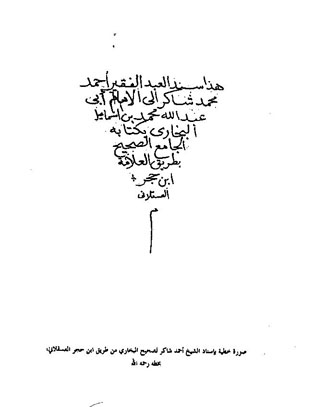 هذا سند العبد الفقير أحمد
محمد شاكر إلى الإمام أبي
عبدالله محمد بن إسماعيل
البخاري بكتابه
الجامع الصحيح
بطريق العلامة
ابن حجر
العسقلاني
م
صورة خطية بإسناد الشيخ أحمد شاكر لصحيح البخاري من طريق ابن حجر العسقلاني،
بخطه رحمه الله